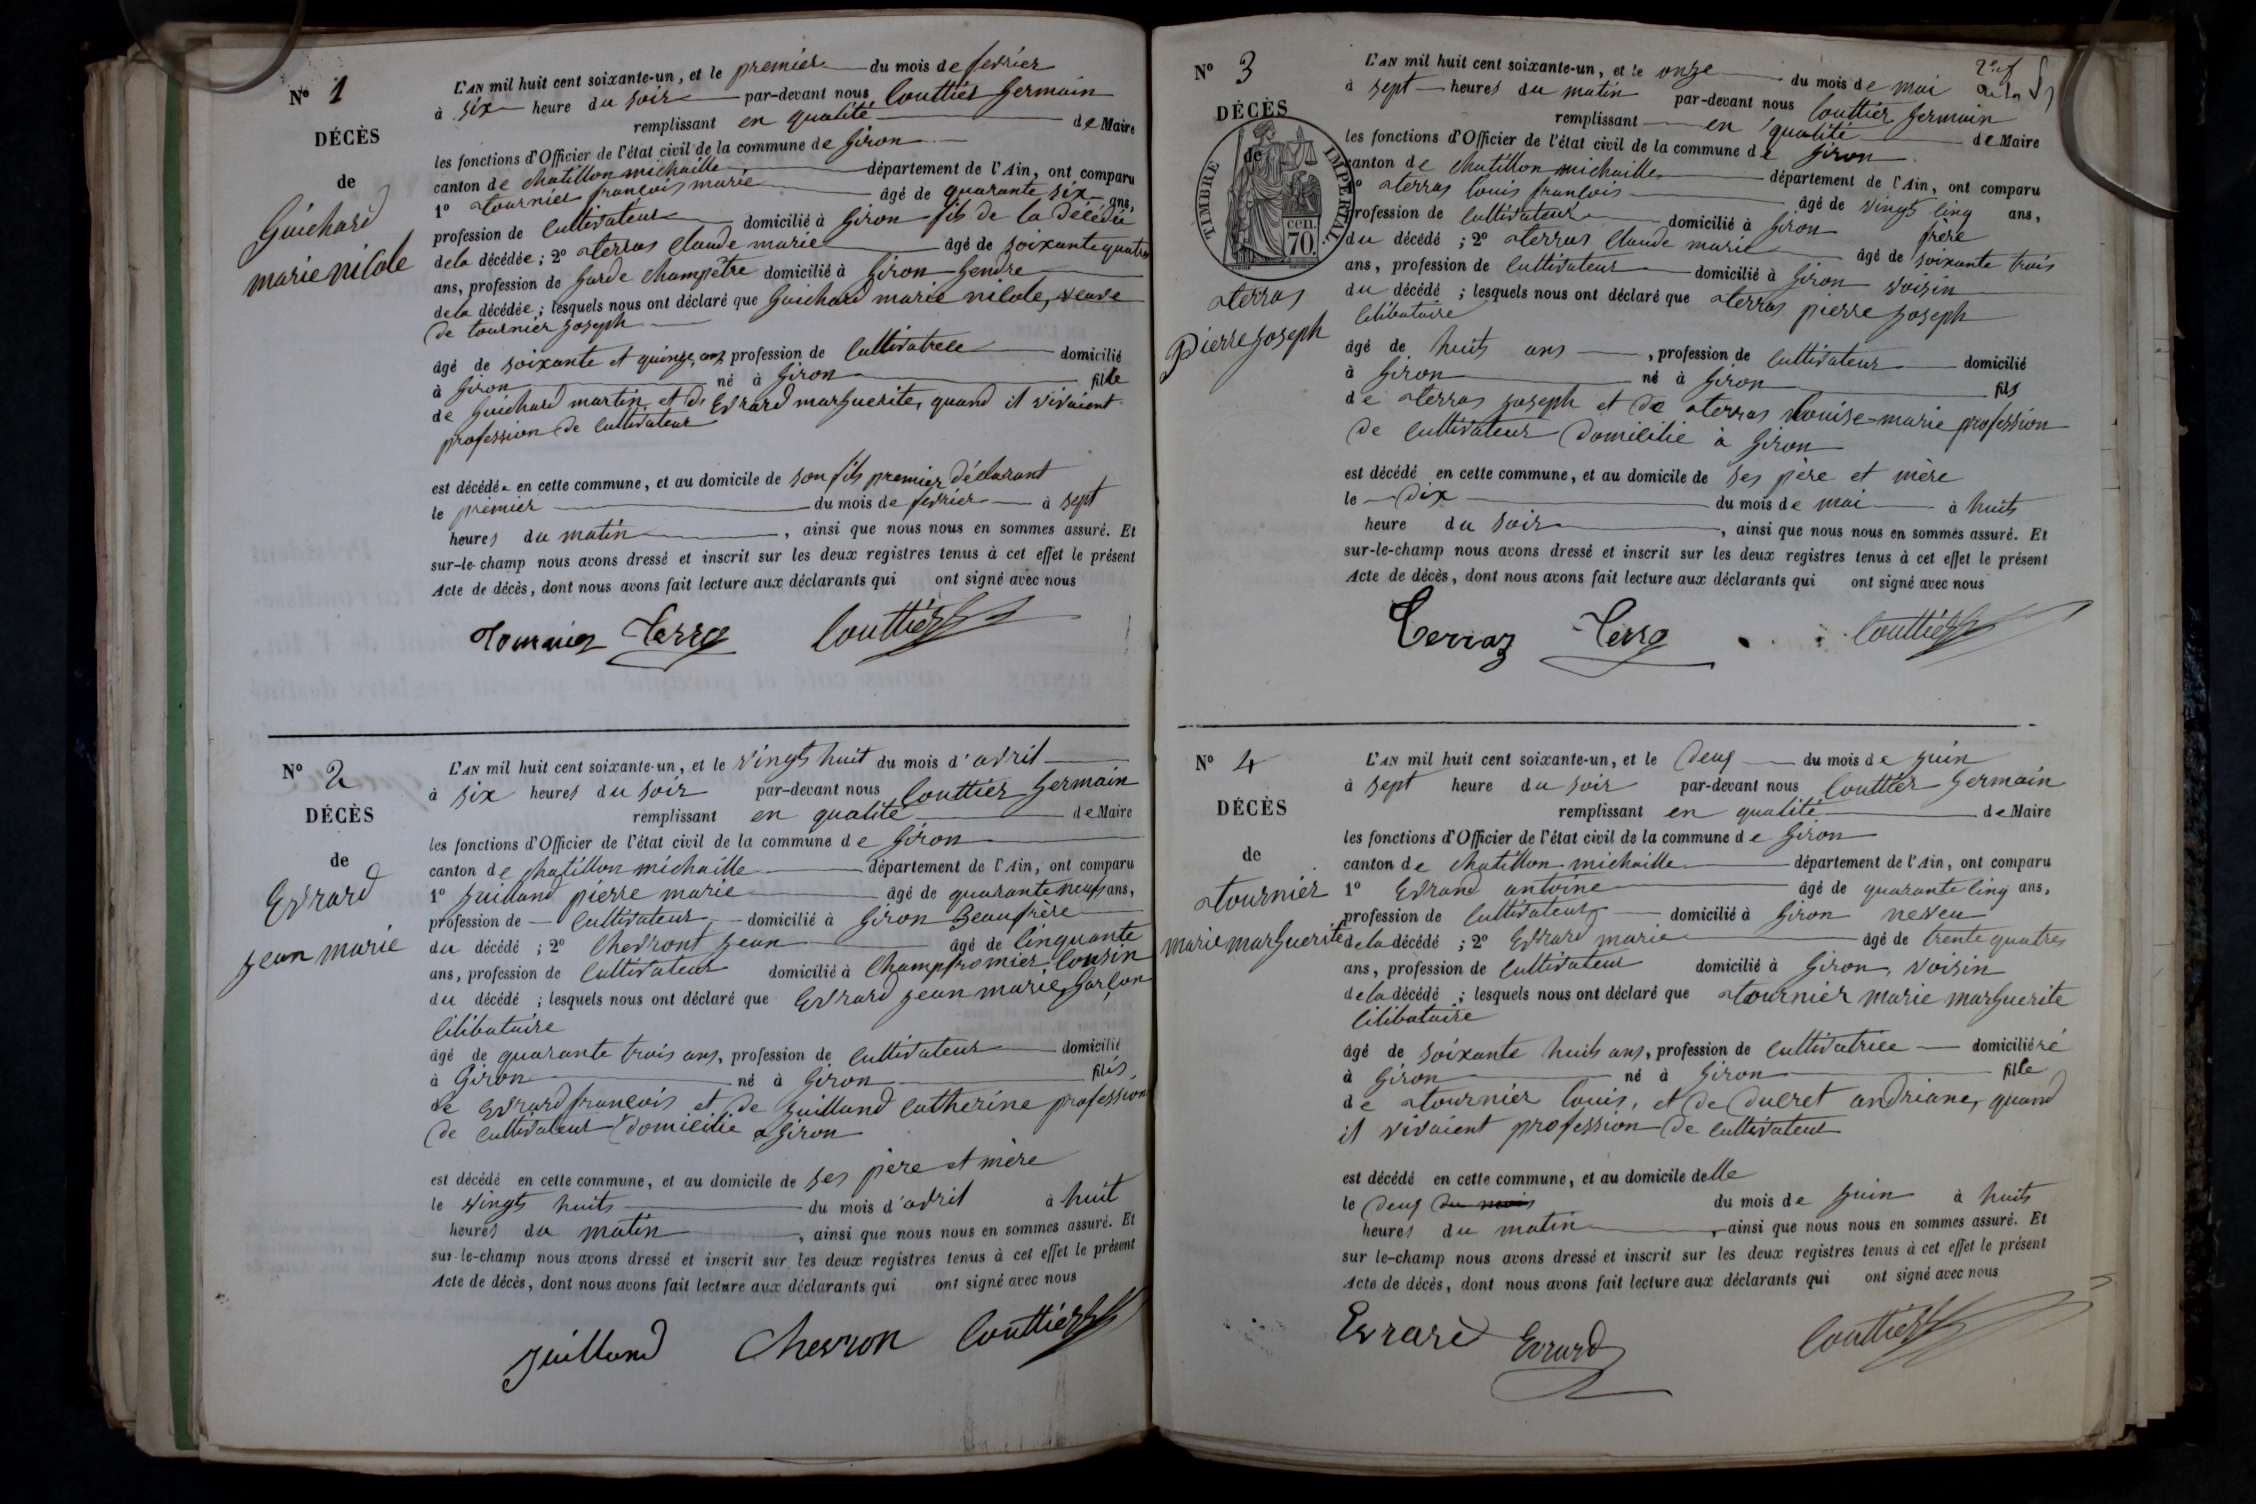 Nº 1
DÉCÈS
de
Guichard
marie nicole
L'AN mil huit cent soixante-un, et le premier du mois de fevrier
à six heure du soir par-devant nous Couttier Germain
remplissant en qualité de Maire
les fonctions d'Officier de l'état civil de la commune de Giron
canton de Chatillon michaille département de l'Ain, ont comparu
1º Tournier françois marie âgé de quarante six ans,
profession de Cultivateur domicilié à Giron fils de la Décédée
de la décédée; 2º Terras Claude marie âgé de soixante quatre
ans, profession de Garde Champêtre domicilié à Giron Gendre
de la décédée; lesquels nous ont déclaré que Guichard marie nicole, veuve
de tournier joseph
âgé de soixante et quinze ans profession de Cultivatrece domicilié
à Giron né à Giron fille
de Guichard martin et de Evrard marguerite, quand il vivaient
profession de Cultivateur
est décédée en cette commune, et au domicile de son fils premier déclarant
le premier du mois de fevrier à sept
heures du matin, ainsi que nous nous en sommes assuré. Et
sur-le-champ nous avons dressé et inscrit sur les deux registres tenus à cet effet le présent
Acte de décès, dont nous avons fait lecture aux déclarants qui ont signé avec nous
Tournier Couttier
Nº 2
DÉCÈS
de
Evrard
jean marie
L'AN mil huit cent soixante-un, et le vingt huit du mois d'avril
à six heures du soir par-devant nous Couttier Germain
remplissant en qualité de Maire
les fonctions d'Officier de l'état civil de la commune de Giron
canton de Chatillon michaille département de l'Ain, ont comparu
1º Juilland pierre marie âgé de quarante neuf ans,
profession de Cultivateur domicilié à Giron Beaufrère
du décédé; 2º Chevront jean âgé de Cinquante
ans, profession de Cultivateur domicilié à Champfromier Cousin
du décédé; lesquels nous ont déclaré que Evrard jean marie, Garçon
Cilibataire
âgé de quarante trois ans, profession de Cultivateur domicilié
à Giron né à Giron fils
de Evrard françois et de Juilland Catherine profession
de Cultivateur Domicilié a Giron
est décédé en cette commune, et au domicile de ses père et mère
le vingt huits du mois d'avril à huit
heures du matin, ainsi que nous nous en sommes assuré. Et
sur-le-champ nous avons dressé et inscrit sur les deux registres tenus à cet effet le présent
Acte de décès, dont nous avons fait lecture aux déclarants qui ont signé avec nous
Juilland Chevron Couttier
Nº 3
DÉCÈS
de
TIMBRE IMPÉRIAL
70 cen.
Terras
Pierre joseph
L'AN mil huit cent soixante-un, et le onze du mois de mai
à sept heures du matin par-devant nous Couttier Germain
remplissant en qualité de Maire
les fonctions d'Officier de l'état civil de la commune de Giron
canton de Chatillon michaille département de l'Ain, ont comparu
1º Terras Louis françois âgé de vingt Cinq ans,
profession de Cultivateur domicilié à Giron frère
du décédé; 2º Terras Claude marie âgé de soixante trois
ans, profession de Cultivateur domicilié à Giron voisin
du décédé; lesquels nous ont déclaré que Terras pierre joseph
Cilibataire
âgé de huits ans, profession de Cultivateur domicilié
à Giron né à Giron fils
de Terras joseph et de Terras Louise-marie profession
de Cultivateur Domicilié à Giron
est décédé en cette commune, et au domicile de ses père et mère
le Dix du mois de mai à huits
heure du soir, ainsi que nous nous en sommes assuré. Et
sur-le-champ nous avons dressé et inscrit sur les deux registres tenus à cet effet le présent
Acte de décès, dont nous avons fait lecture aux déclarants qui ont signé avec nous
Terraz Couttier
Nº 4
DÉCÈS
de
Tournier
marie marguerite
L'AN mil huit cent soixante-un, et le Deux du mois de juin
à sept heure du soir par-devant nous Couttier Germain
remplissant en qualité de Maire
les fonctions d'Officier de l'état civil de la commune de Giron
canton de Chatillon michaille département de l'Ain, ont comparu
1º Evrard antoine âgé de quarante Cinq ans,
profession de Cultivateur domicilié à Giron neveu
de la décédé; 2º Evrard marie âgé de trente quatres
ans, profession de Cultivateur domicilié à Giron, voisin
de la décédé; lesquels nous ont déclaré que Tournier marie marguerite
Cilibataire
âgé de soixante huits ans, profession de Cultivatrice domicilié ré
à Giron né à Giron fille
de Tournier Louis, et de Ducret andriane, quand
il vivaient profession de Cultivateur
est décédé en cette commune, et au domicile delle
le Deux du mois du mois de juin à huits
heures du matin, ainsi que nous nous en sommes assuré. Et
sur le-champ nous avons dressé et inscrit sur les deux registres tenus à cet effet le présent
Acte de décès, dont nous avons fait lecture aux déclarants qui ont signé avec nous
Evrard Evrard Couttier